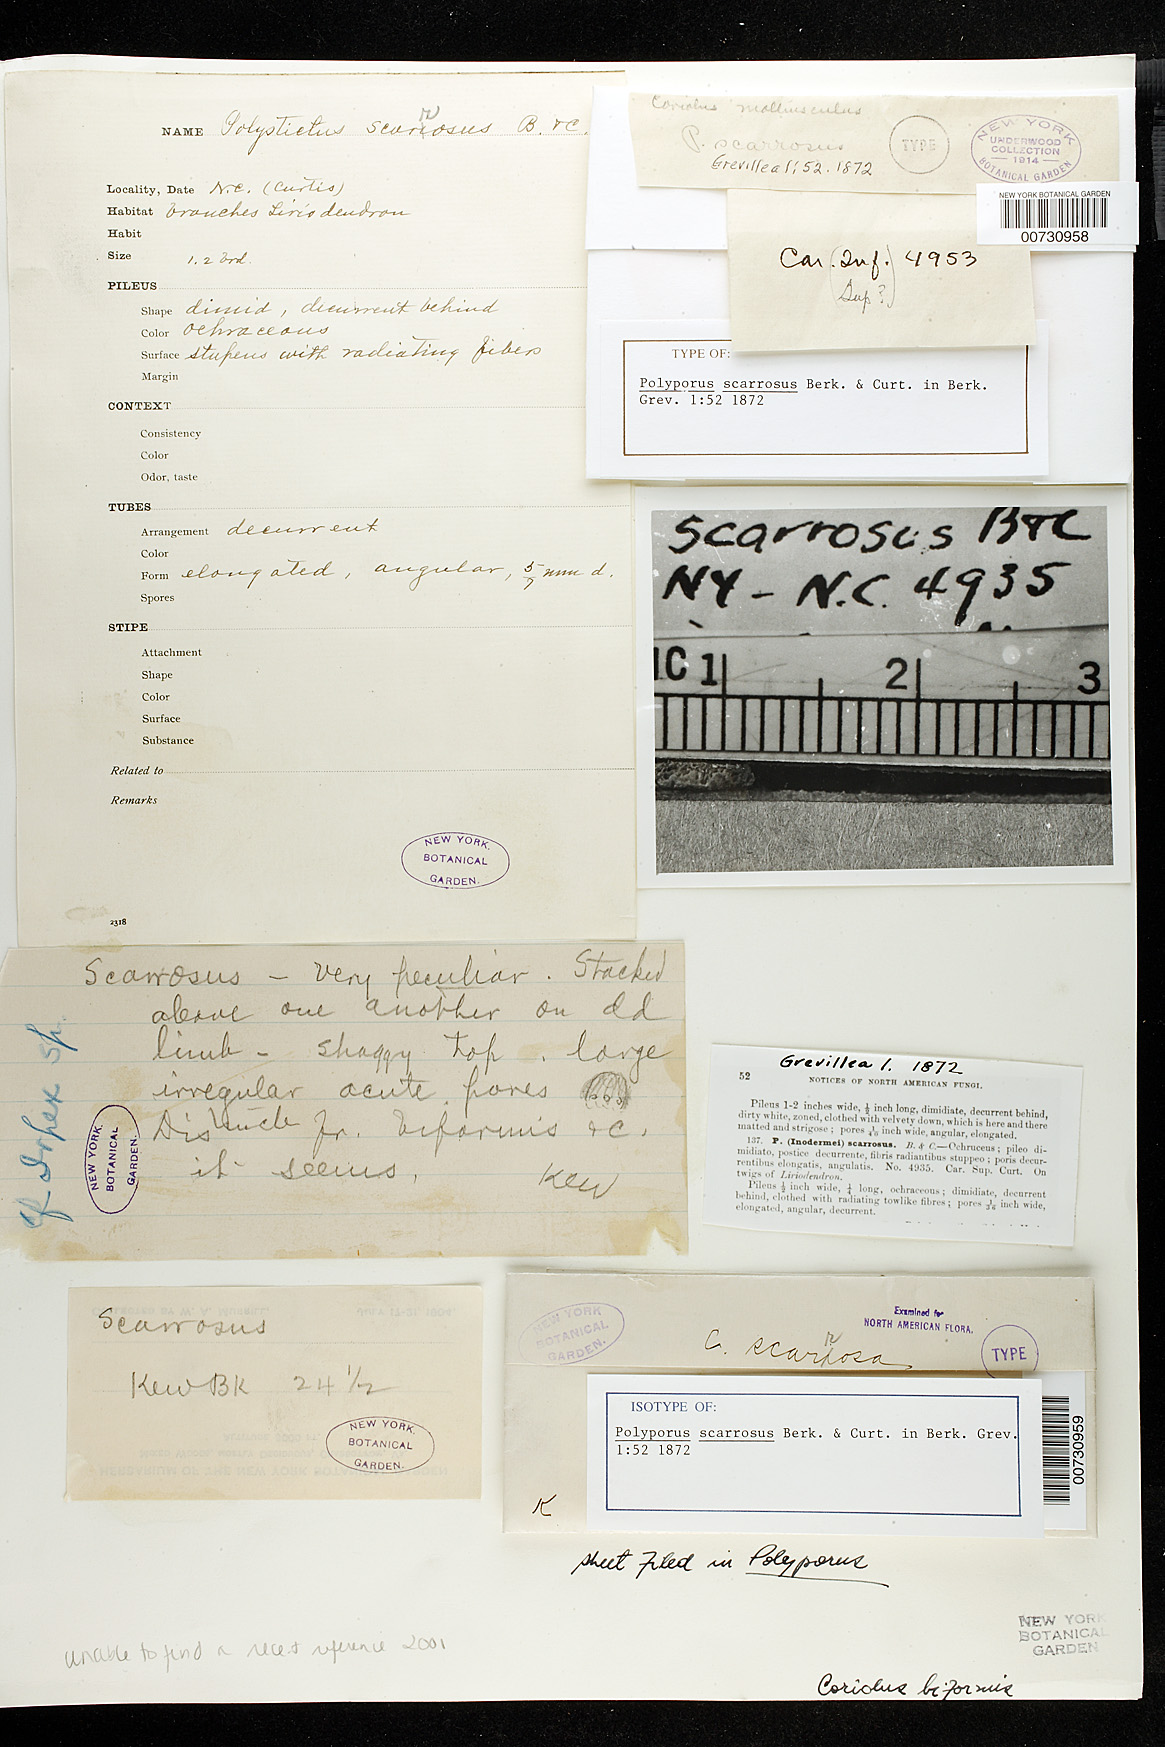 NAME Polystictus scarrosus B. & C.
Locality, Date N.C. (Curtis)
Habitat branches Liriodendron
Habit
Size 1. 2 brd.
PILEUS
Shape dimid, decurrent behind
Color ochraceous
Surface stupens with radiating fibers
Margin
CONTEXT
Consistency
Color
Odor, taste
TUBES
Arrangement decurrent
Color
Form elongated, angular, 5/7 mm d.
Spores
STIPE
Attachment
Shape
Color
Surface
Substance
Related to
Remarks
NEW YORK
BOTANICAL
GARDEN.
2318
Coriolus molliusculus
P. scarrosus
Grevillea 1; 52. 1872
TYPE
NEW YORK
UNDERWOOD
COLLECTION
1914
BOTANICAL GARDEN
NEW YORK BOTANICAL GARDEN
00730958
Car. (Inf.) 4953
(Sup?)
TYPE OF:
Polyporus scarrosus Berk. & Curt. in Berk.
Grev. 1:52 1872
scarrosus B&C
NY - N.C. 4935
IC 1 2 3
Scarrosus - very peculiar. Stacked
above one another on dd
limb - shaggy top. large
irregular acute pores
Distinct fr. biformis &c.
it seems. Kew
cf Irpex sp.
NEW YORK.
BOTANICAL
GARDEN.
Grevillea 1. 1872
52
NOTICES OF NORTH AMERICAN FUNGI.
Pileus 1-2 inches wide, ½ inch long, dimidiate, decurrent behind,
dirty white, zoned, clothed with velvety down, which is here and there
matted and strigose; pores 1/48 inch wide, angular, elongated.
137. P. (Inodermei) scarrosus. B. & C.—Ochruceus; pileo di-
midiato, postice decurrente, fibris radiantibus stuppeo; poris decur-
rentibus elongatis, angulatis. No. 4935. Car. Sup. Curt. On
twigs of Liriodendron.
Pileus ½ inch wide, ¼ long, ochraceous; dimidiate, decurrent
behind, clothed with radiating towlike fibres; pores 1/36 inch wide,
elongated, angular, decurrent.
Scarrosus
Kew BK 24 1/2
NEW YORK.
BOTANICAL
GARDEN.
NEW YORK
BOTANICAL
GARDEN.
Examined for
NORTH AMERICAN FLORA.
C. scarrosa
TYPE
ISOTYPE OF:
Polyporus scarrosus Berk. & Curt. in Berk. Grev.
1:52 1872
00730959
K
sheet filed in Polyporus
NEW YORK
BOTANICAL
GARDEN
unable to find a recent reference 2001
Coriolus biformis